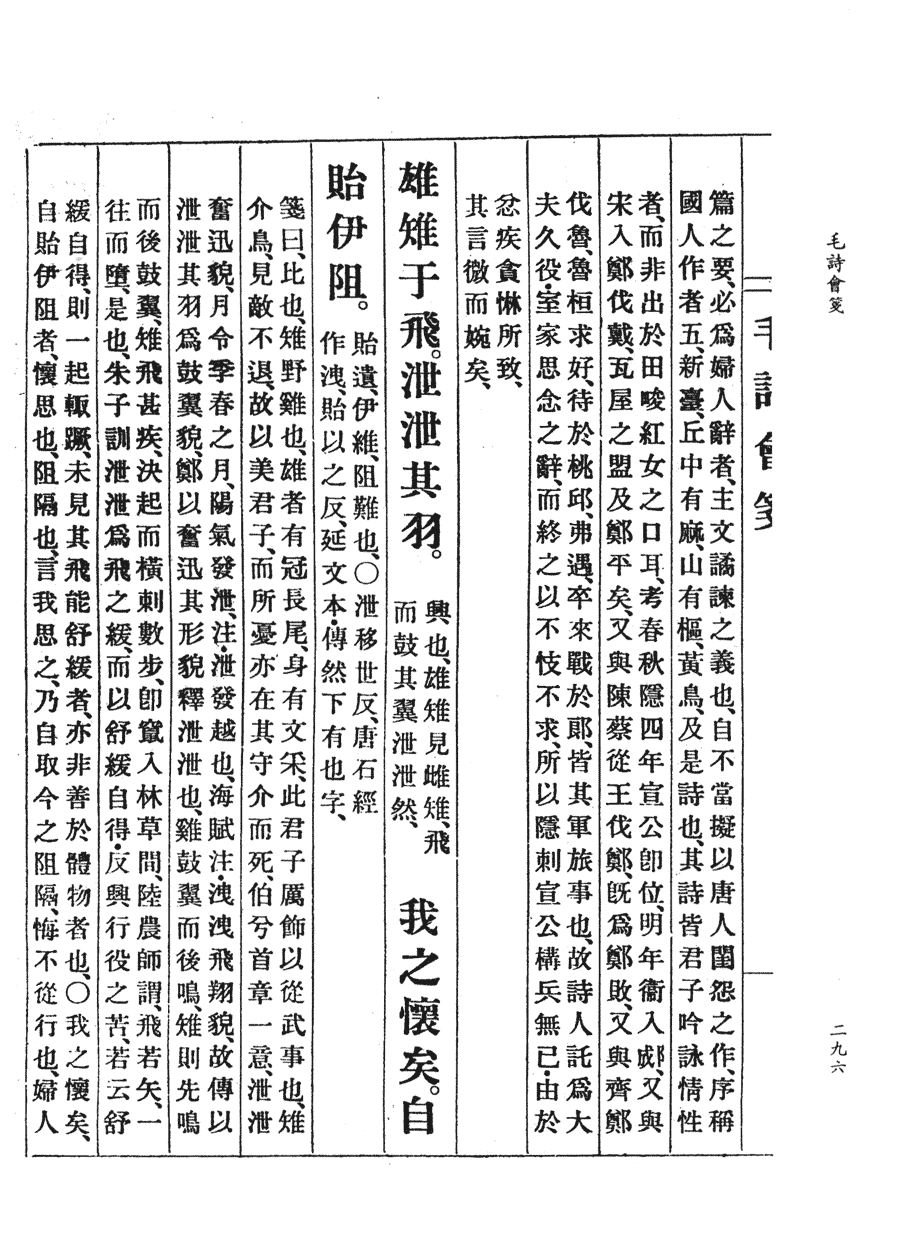 毛詩會箋
二九六
毛詩會箋
篇之要、必爲婦人辭者、主文譎諫之義也、自不當擬以唐人閨怨之作、序稱
國人作者五、新臺、丘中有麻、山有樞、黃鳥、及是詩也、其詩皆君子吟詠情性
者、而非出於田畯紅女之口耳、考春秋隱四年宣公卽位、明年衞入郕、又與
宋入鄭伐戴、瓦屋之盟及鄭平矣、又與陳蔡從王伐鄭、旣爲鄭敗、又與齊鄭
伐魯、魯桓求好、待於桃邱、弗遇、卒來戰於郎、皆其軍旅事也、故詩人託爲大
夫久役、室家思念之辭、而終之以不忮不求、所以隱刺宣公構兵無已、由於
忿疾貪惏所致、
其言微而婉矣、
雄雉于飛。泄泄其羽。
興也、雄雉見雌雉、飛
而鼓其翼泄泄然、
我之懷矣。自
貽伊阻。
貽遺、伊維、阻難也、〇泄移世反、唐石經
作洩、貽以之反、延文本、傳然下有也字、
箋曰、比也、雉野雞也、雄者有冠長尾、身有文采、此君子厲飾以從武事也、雉
介鳥、見敵不退、故以美君子、而所憂亦在其守介而死、伯兮首章一意、泄泄
奮迅貌、月令季春之月、陽氣發泄、注、泄發越也、海賦注、洩洩飛翔貌、故傳以
泄泄其羽爲鼓翼貌、鄭以奮迅其形貌釋泄泄也、雞鼓翼而後鳴、雉則先鳴
而後鼓翼、雉飛甚疾、決起而橫刺數步、卽竄入林草間、陸農師謂、飛若矢、一
往而墮、是也、朱子訓泄泄爲飛之緩、而以舒緩自得、反興行役之苦、若云舒
緩自得、則一起輙蹶、未見其飛能舒緩者、亦非善於體物者也、〇我之懷矣、
自貽伊阻者、懷思也、阻隔也、言我思之、乃自取今之阻隔、悔不從行也、婦人